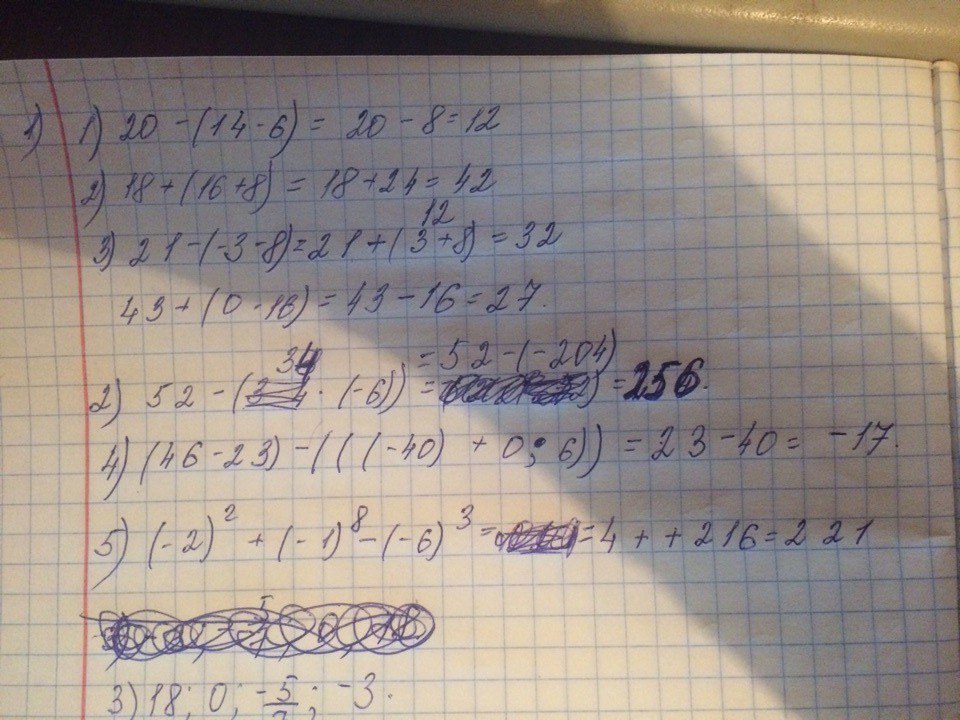 1) 1) 20 - (14 - 6) = 20 - 8 = 12
2) 18 + (16 + 8) = 18 + 24 = 42
12
3) 21 - (-3 - 8) = 21 + (3 + 8) = 32
43 + (0 - 16) = 43 - 16 = 27.
34 = 52 - (-204)
2) 52 - ( · (-6)) = = 256.
4) (46 - 23) - (((-40) + 0 : 6)) = 23 - 40 = -17.
5) (-2)² + (-1)⁸ - (-6)³ = = 4 + + 216 = 221
3) 18; 0; -5/; -3.